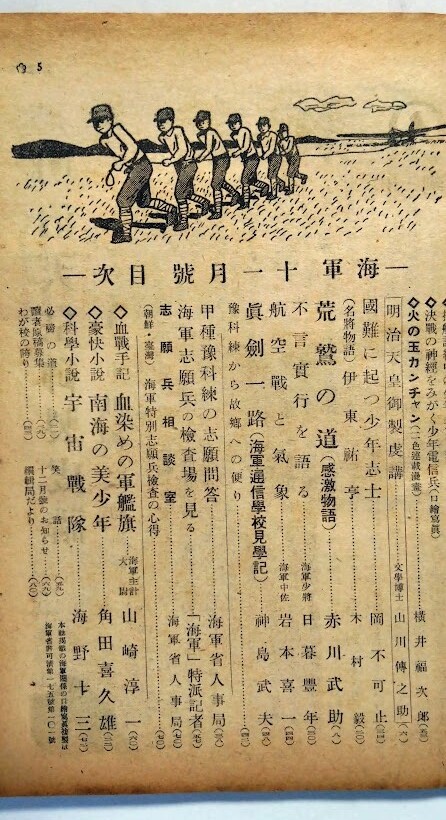 5
―海軍 十一月號 目次―
◇決戰の神經をみがく少年電信兵(口繪寫眞)
◇火の玉カンチャン(二色連載漫畫)……橫井福次郎
明治天皇御製虔講……文學博士 山川傳之助
國難に起つ少年志士……岡不可止
(名將物語)伊東祐亨……木村毅
荒鷲の道(感激物語)……赤川武助
不言實行を語る……海軍少將 日暮豐年
航空戰と氣象……海軍中佐 岩本喜一
眞劍一路(海軍通信學校見學記)……神島武夫
豫科練から故鄕への便り
甲種豫科練の志願問答……海軍省人事局
海軍志願兵の檢査場を見る……「海軍」特派記者
志願兵相談室……海軍省人事局
(朝鮮・臺灣)海軍特別志願兵檢査の心得
◇血戰手記 血染めの軍艦旗……海軍主計大尉 山崎淳一
◇豪快小說 南海の美少年……角田喜久雄
◇科學小說 宇宙戰隊……海野十三
必勝の道
讀者原稿募集
わが校の誇り
笑話
十二月號のお知らせ
編輯局だより